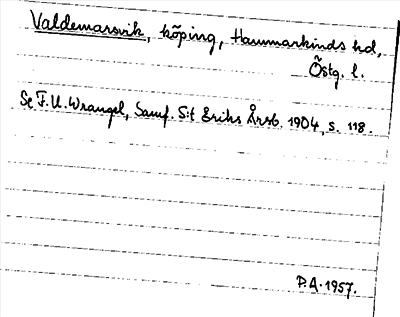 Valdemarsvik, köping, Hammarkinds hd,
Östg. l.
Se F.U. Wrangel, Samf. S:t Eriks Årsb. 1904, s. 118.
P.A. 1957.